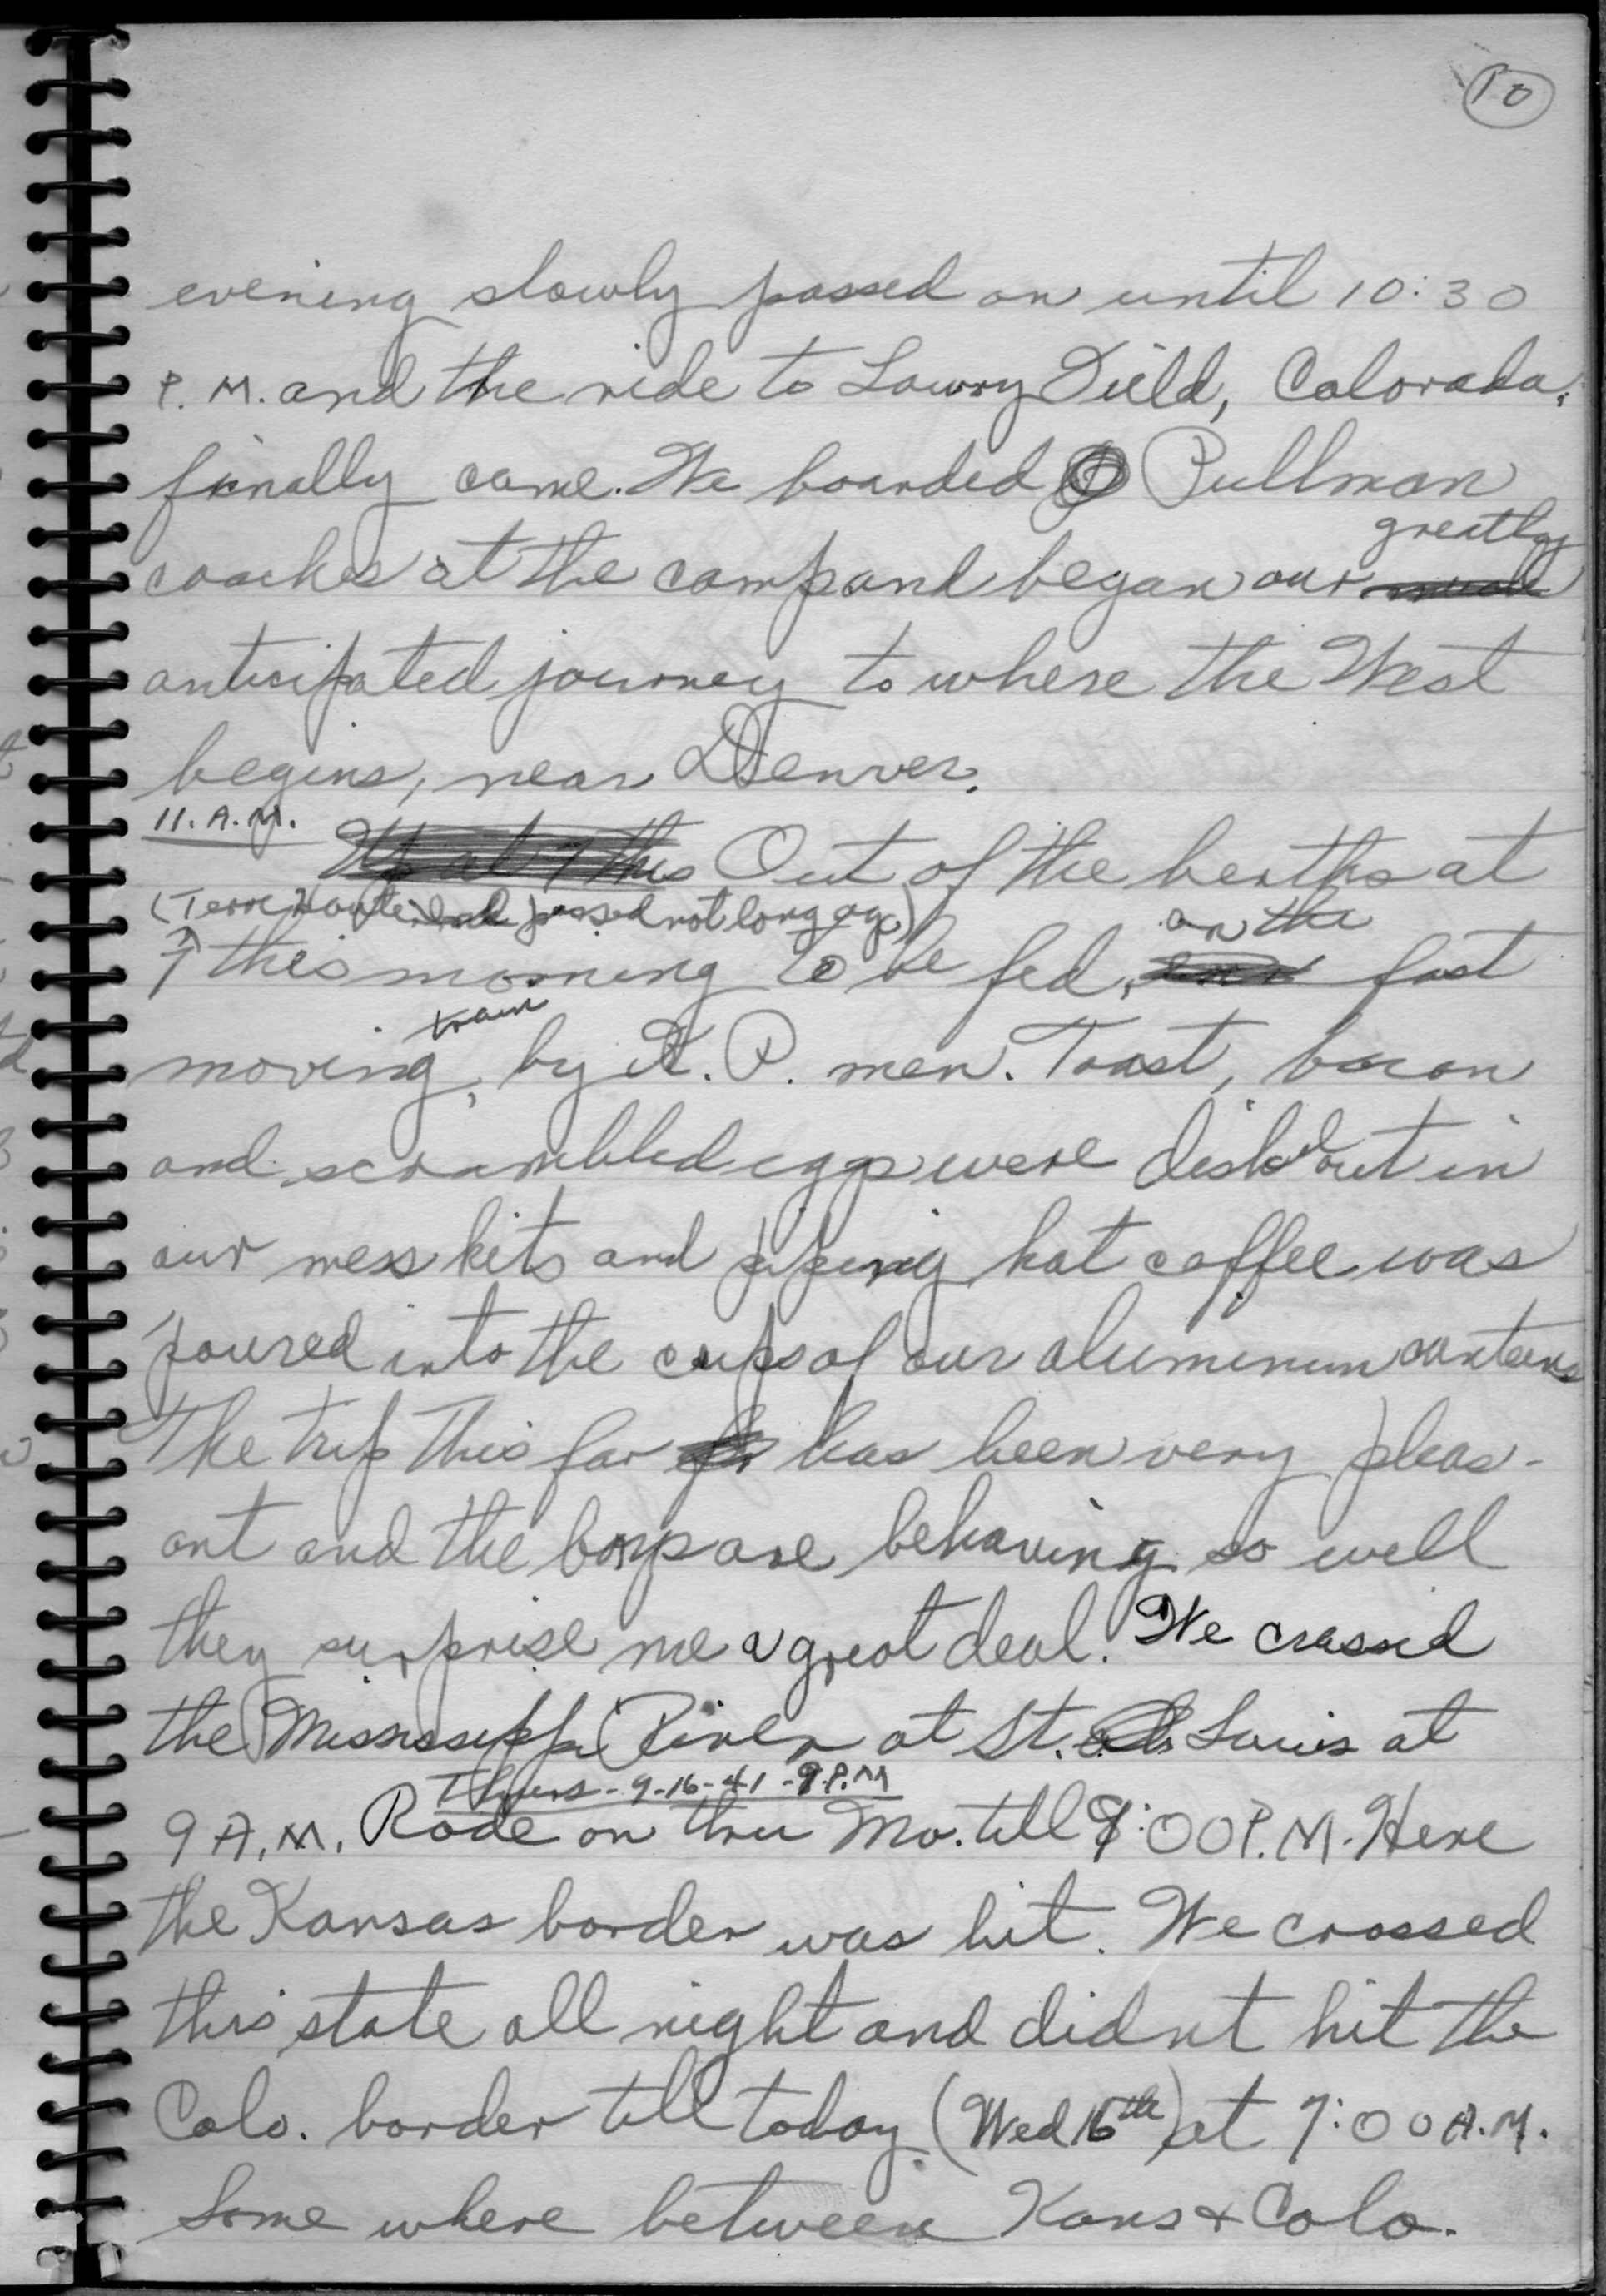 10
evening slowly passed on until 10:30
P.M. and the ride to Lowry Field, Colorado.
finally came. We boarded Pullman
greatly
coaches at the camp and began our
anticipated journey to where the West
begins, near Denver.
11. A.M.
Up at 7 this Out of the berths at
(Terre Haute, Ind. passed not long ago)
on the
7 this morning to be fed, fast
train
moving, by K.P. men. Toast, bacon
and scrambled eggs were dish'd out in
our mess kits and piping hot coffee was
poured into the cups of our aluminum canteens
The trip this far has been very pleas-
ant and the boys are behaving so well
they surprise me a great deal. We crossed
the Mississippi River at St. Louis at
Thurs - 9-16-41 - 9 P.M
9 A.M. Rode on thru Mo. till 9:00 P.M. Here
the Kansas border was hit. We crossed
this state all night and didnt hit the
Colo. border till today (Wed 16th) at 7:00 A.M.
Some where between Kans & Colo.